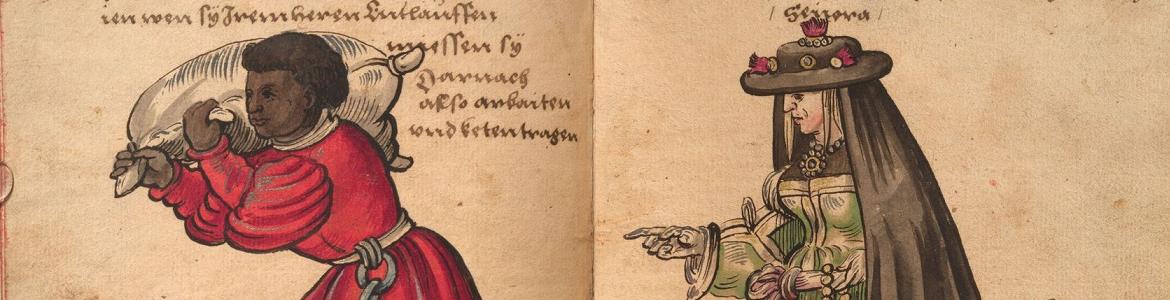 ien wen sy Jren heren Entlauffen
miessen sy
Darnach
also arbaiten
vnd keten tragen
/ Senora /